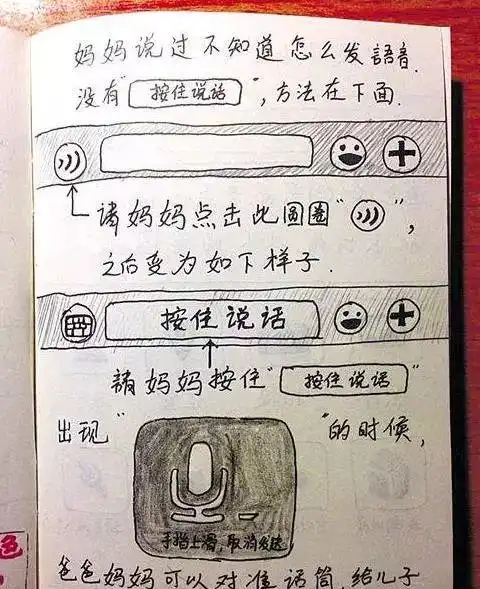 妈妈说过不知道怎么发語音.
没有"按住说话",方法在下面.
請妈妈点击此圆圈"",
之后变为如下样子.
按住说话
請妈妈按住"按住说话"
出现""的时候,
手指上滑,取消发送
爸爸妈妈可以对准话筒,给儿子
色